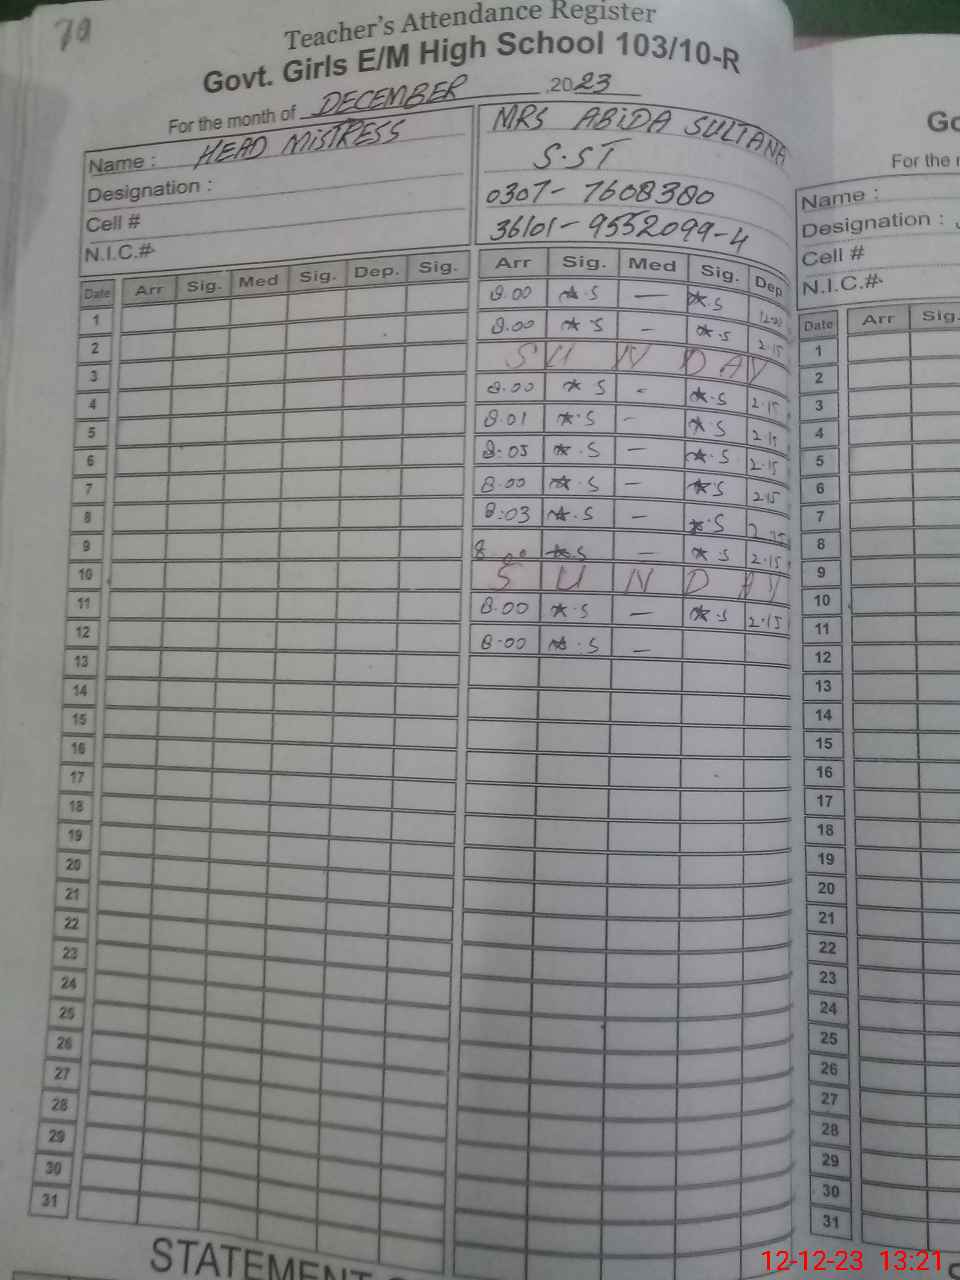 70
Teacher's Attendance Register
Govt. Girls E/M High School 103/10-R
For the month of DECEMBER ,2023
Name : HEAD MISTRESS
Designation :
Cell #
N.I.C.#
MRS ABIDA SULTANA
S.ST
0307-7608380
36101-9552099-4
Date Arr Sig. Med Sig. Dep. Sig. Arr Sig. Med Sig. Dep
1 8.00 — 12.00
2 8.00 - 2.15
3 SUNDAY
4 8.00 - 2.15
5 8.01 - 2.15
6 8:05 — 2.15
7 8.00 — 2.15
8 8:03 —
9 8.00 — 2.15
10 SUNDAY
11 8.00 — 2.15
12 8.00 —
13
14
15
16
17
18
19
20
21
22
23
24
25
26
27
28
29
30
31
STATEMENT
Go
For the
Name :
Designation :
Cell #
N.I.C.#
Date Arr Sig.
1
2
3
4
5
6
7
8
9
10
11
12
13
14
15
16
17
18
19
20
21
22
23
24
25
26
27
28
29
30
31
12-12-23 13:21